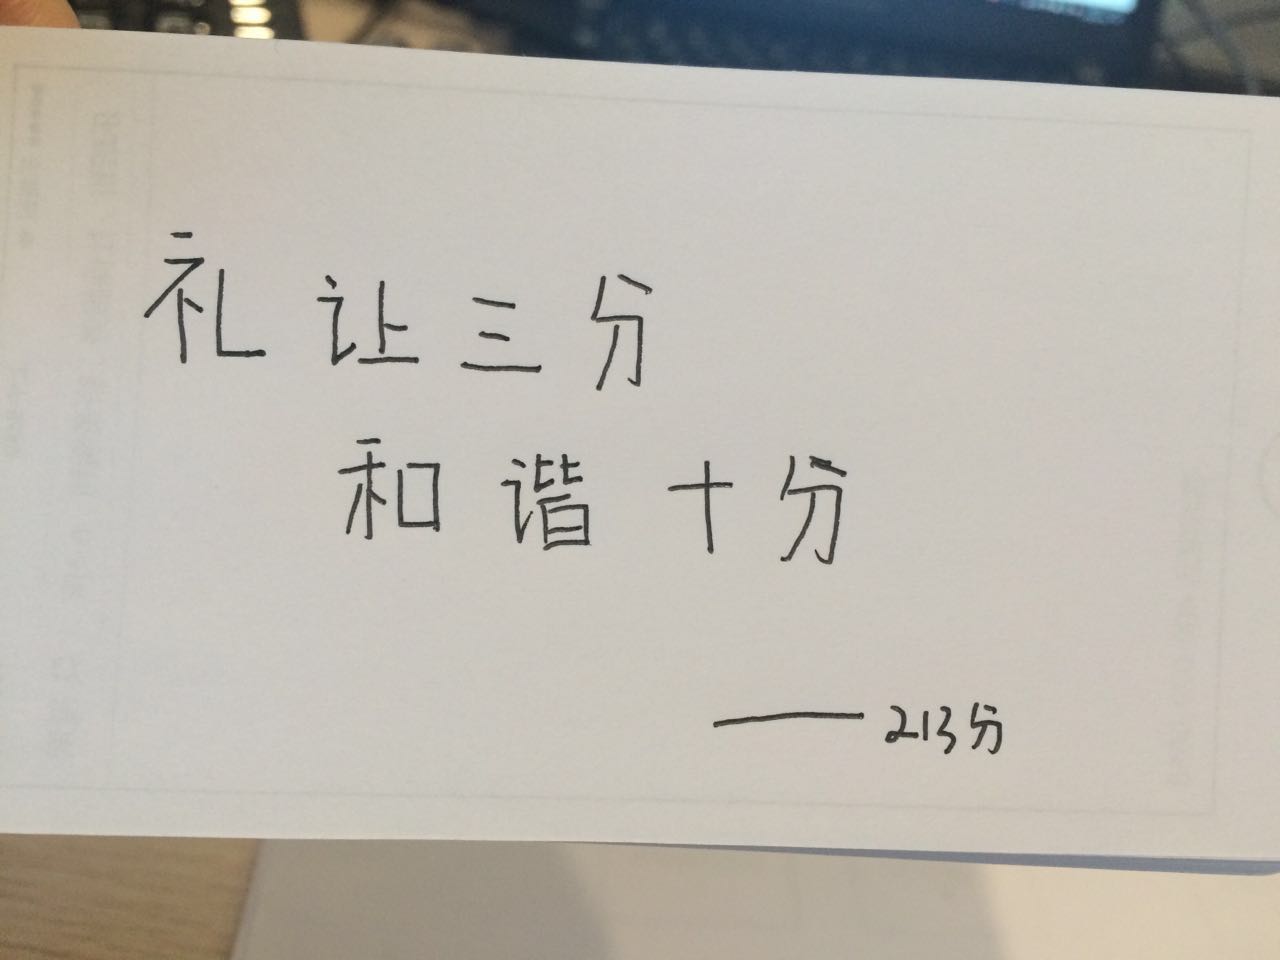 礼让三分
和谐十分
——213分